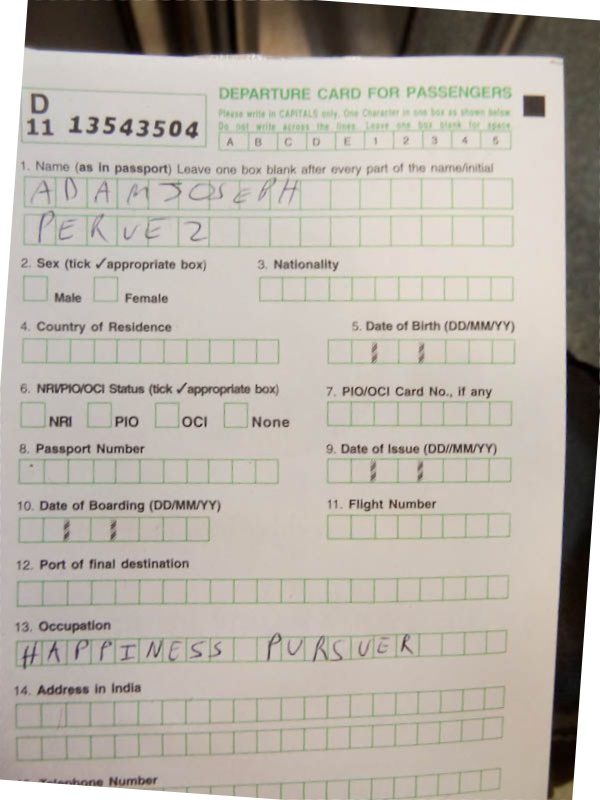 D
11 13543504
DEPARTURE CARD FOR PASSENGERS
Please write in CAPITALS only. One Character in one box as shown below
Do not write across the lines. Leave one box blank for space
A B C D E 1 2 3 4 5
1. Name (as in passport) Leave one box blank after every part of the name/initial
ADAM JOSEPH
PERVEZ
2. Sex (tick ✓appropriate box)
Male Female
3. Nationality
4. Country of Residence
5. Date of Birth (DD/MM/YY)
6. NRI/PIO/OCI Status (tick ✓appropriate box)
NRI PIO OCI None
7. PIO/OCI Card No., if any
8. Passport Number
9. Date of Issue (DD//MM/YY)
10. Date of Boarding (DD/MM/YY)
11. Flight Number
12. Port of final destination
13. Occupation
HAPPINESS PURSUER
14. Address in India
Telephone Number